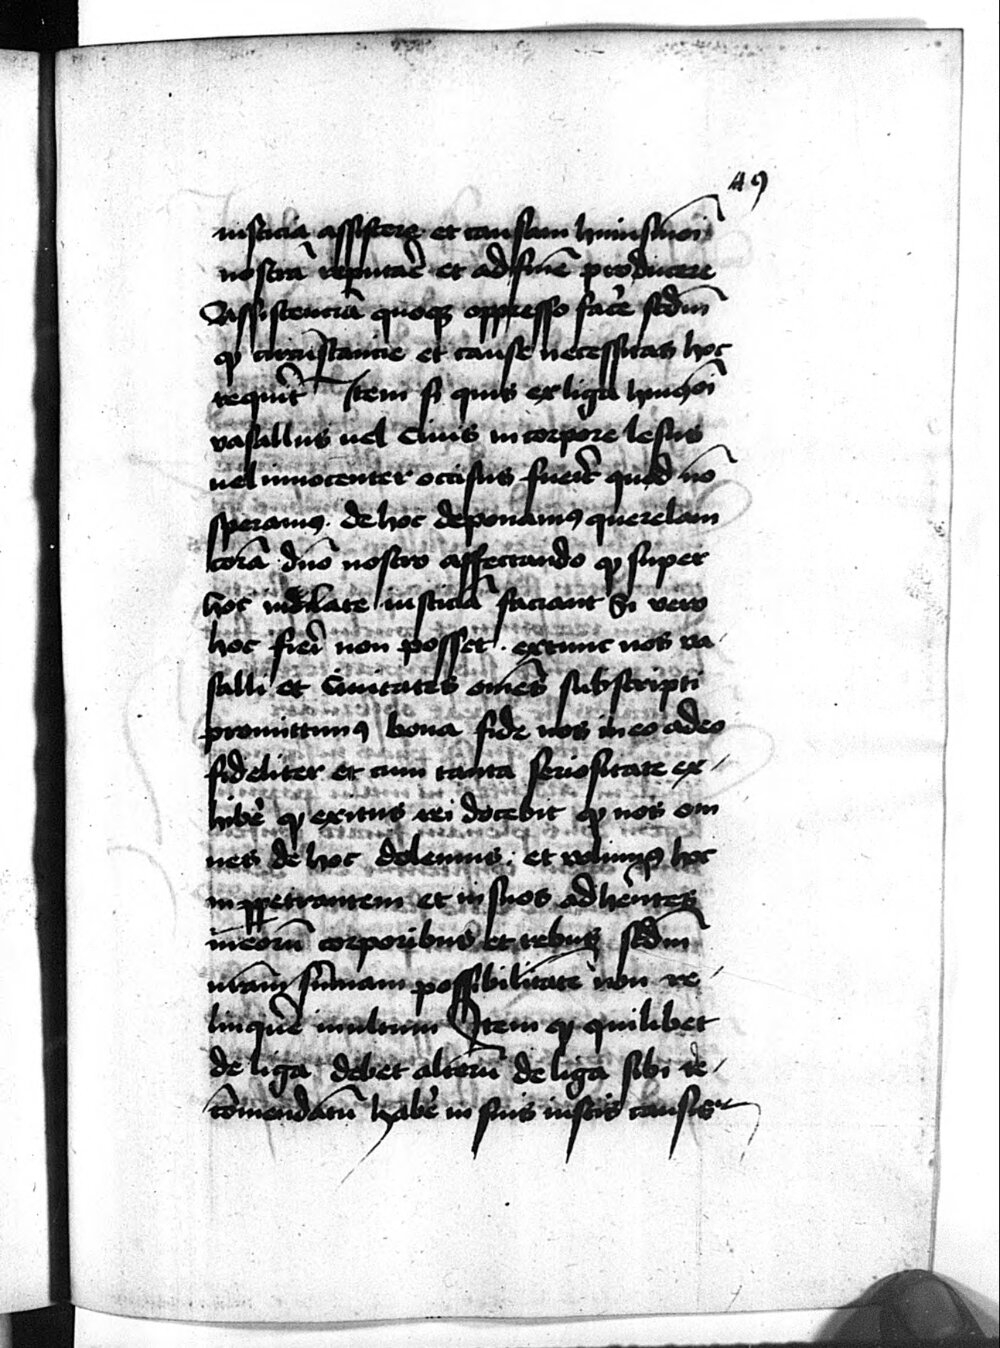 49
iusticia assistere et causam huiusmoi
nostrā reputare et ad finē producere
Assistenciā quoque oppresso facē scdm
qp circūstancie et cause necessitas hoc
requirit Item si quis ex liga huiusmoi
vasallus vel Civis in corpore lesus
vel innocenter occisus fuerit quod nō
speramus · de hoc deponamus querelam
corā dno nostro affectando qp super
hoc indilate iusticiā faciant Si vero
hoc fieri non posset · extunc nos va
salli et Civitates omēs subscripti
promittimus bona fide nos in eo adeo
fideliter et cum tanta seriositate ex
hibē qp exitus rei docebit qp nos om
nes de hoc dolemus · et volumus hoc
inppetrantem et in suos adherētes
in eorū corporibus et rebus scdm
nrām sūmam possibilitatē non re
linquē inultum Item qp quilibet
de liga debet alterū de liga sibi re
cōmendatū habē in suis iustis causis